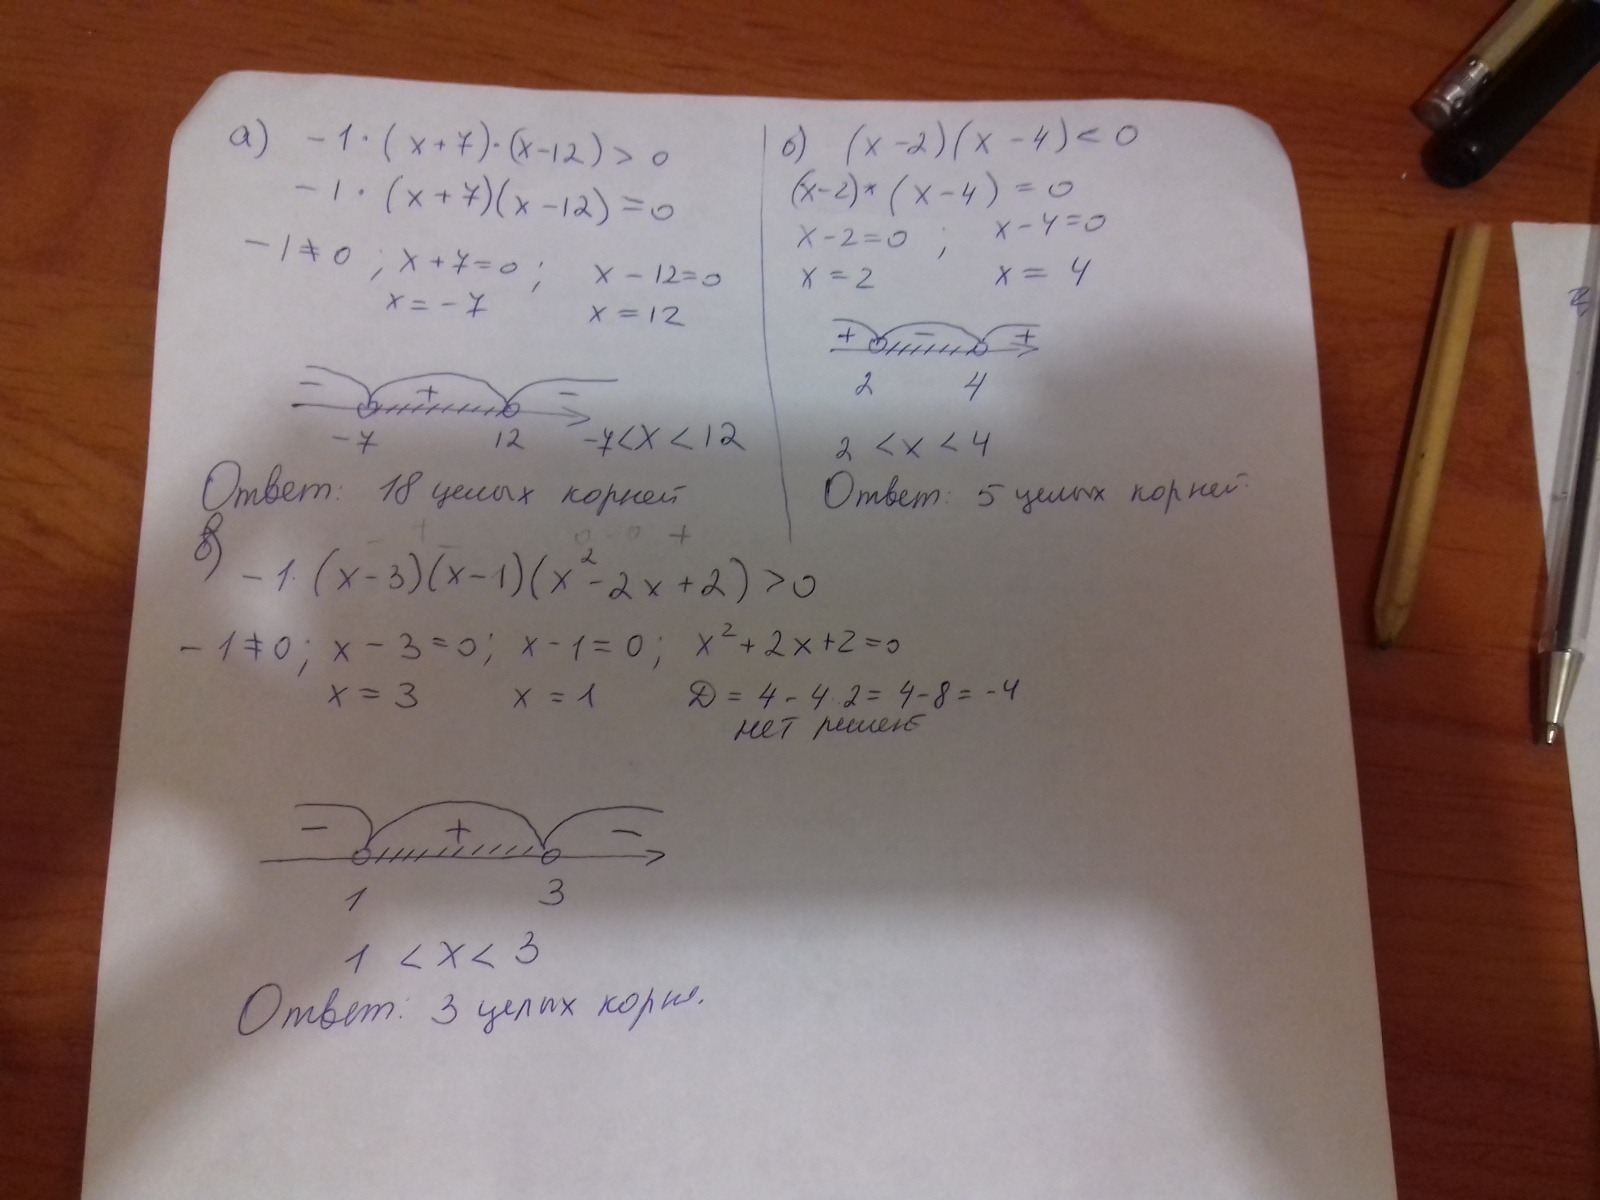 а) -1·(x+7)·(x-12)>0
-1·(x+7)(x-12)=0
-1≠0; x+7=0; x-12=0
x=-7 x=12
- + -
-7 12 -7<x<12
Ответ: 18 целых корней
б) (x-2)(x-4)<0
(x-2)*(x-4)=0
x-2=0; x-4=0
x=2 x=4
+ - +
2 4
2<x<4
Ответ: 5 целых корней.
в) -1·(x-3)(x-1)(x²-2x+2)>0
-1≠0; x-3=0; x-1=0; x²+2x+2=0
x=3 x=1 D=4-4·2=4-8=-4
нет
- + -
1 3
1<x<3
Ответ: 3 целых корня.